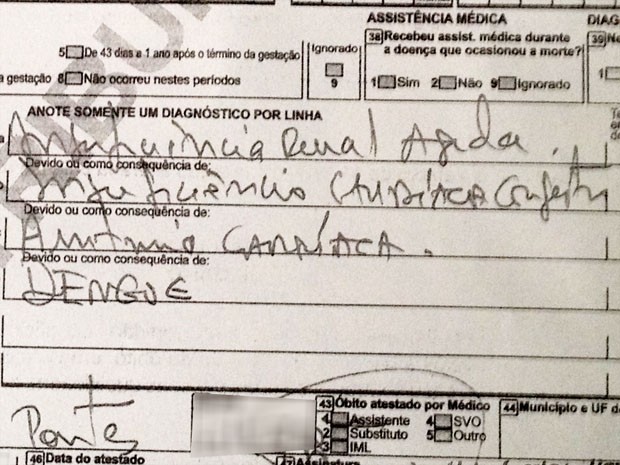 ASSISTÊNCIA MÉDICA DIAG
5 De 43 dias a 1 ano após o término da gestação
Ignorado
9
38 Recebeu assist. médica durante a doença que ocasionou a morte?
39
a gestação 8 Não ocorreu nestes períodos
1 Sim 2 Não 9 Ignorado
1
ANOTE SOMENTE UM DIAGNÓSTICO POR LINHA
Insuficiência Renal Aguda.
Devido ou como consequência de:
Insuficiência CARDÍACA
Devido ou como consequência de:
CARDÍACA.
Devido ou como consequência de:
DENGUE
43 Óbito atestado por Médico
44 Município e UF d
1 Assistente 4 SVO
2 Substituto 5 Outro
3 IML
46 Data do atestado
47 Assinatura